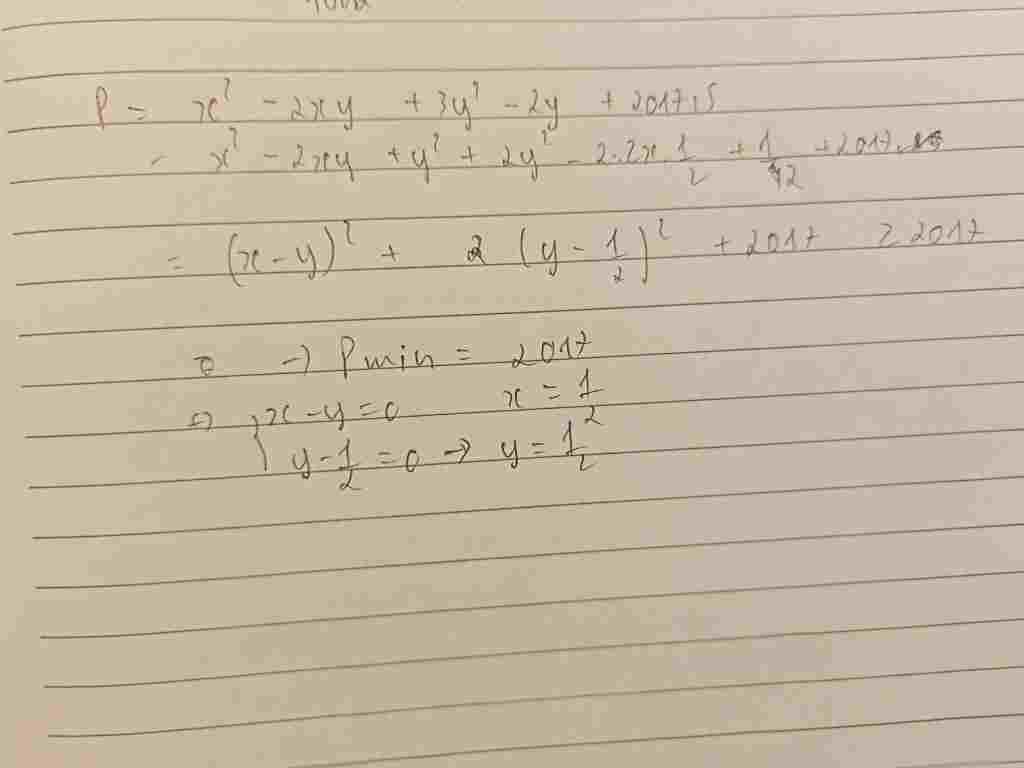 P = x² - 2xy + 3y² - 2y + 2017,5
= x² - 2xy + y² + 2y² - 2.2x.1/2 + 1/2 + 2017
= (x - y)² + 2 (y - 1/2)² + 2017 ≥ 2017
→ P min = 2017
⇔ { x - y = 0 x = 1/2
y - 1/2 = 0 → y = 1/2